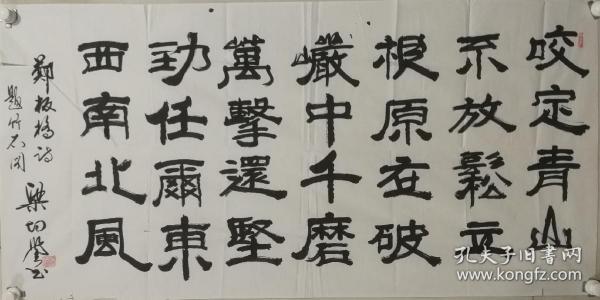 咬定青山
不放鬆立
根原在破
巖中千磨
萬擊還堅
勁任爾東
西南北風
鄭板橋詩
題竹石圖
梁
孔夫子旧书网
www.kongfz.com